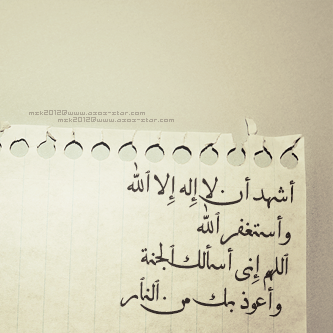 msk2012@www.asas-star.com
msk2012@www.asas-star.com
أشهد أن لا إله إلا الله
وأستغفر الله
اللهم إنى أسألك الجنة
وأعوذ بك من النار